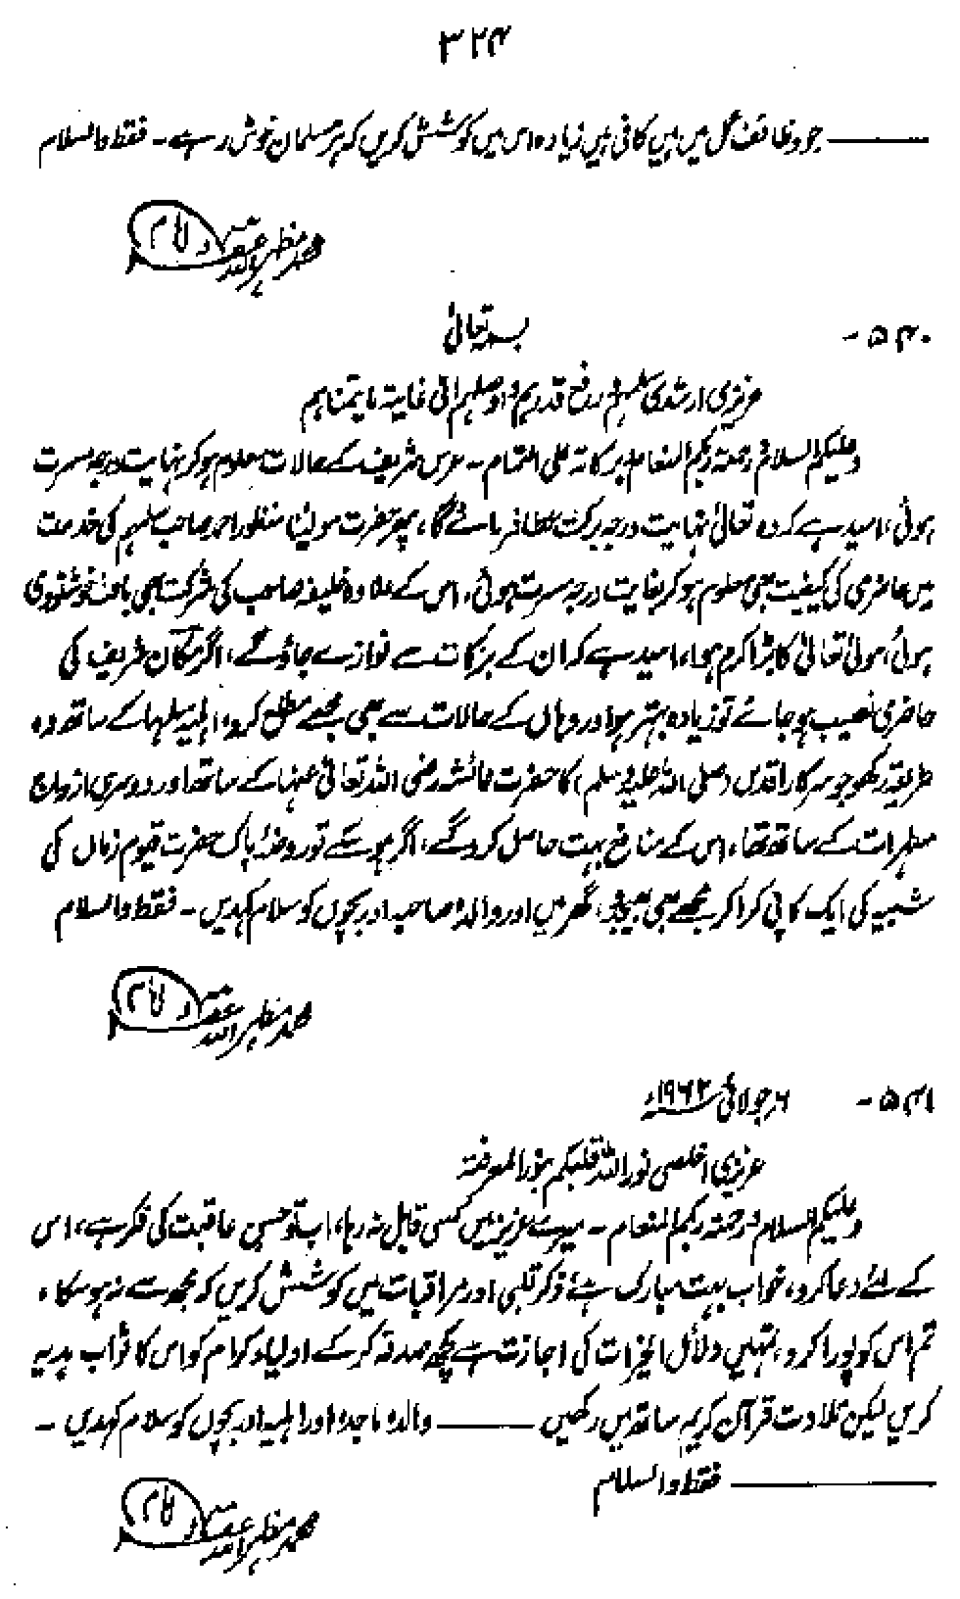 ۳۲۴
ــــــــ جو وظائف عمل میں ہیں کافی ہیں زیادہ اس میں کوشش کریں کہ ہر مسلمان خوش رہے۔ فقط والسلام
محمد مظہر اللہ غفرلہ
۵۴۰۔
بسمہ تعالیٰ
عزیزی ارشدی سلمہم و رفع قدرہم و اوصلہم الی غایۃ ما یتمناہم
وعلیکم السلام ورحمۃ ربکم المنعام وبرکاتہ علی التمام ۔ عرس شریف کے حالات معلوم ہوکر نہایت درجہ مسرت
ہوئی، امید ہے کہ وہ تعالیٰ نہایت درجہ برکت عطا فرمائے گا، پھر حضرت مولینا منظور احمد صاحب سلمہم کی خدمت
میں حاضری کی کیفیت بھی معلوم ہوکر بغایت درجہ مسرت ہوئی، اس کے علاوہ خلیفہ صاحب کی شرکت بھی باعث خوشنودی
ہوئی، مولیٰ تعالیٰ کا بڑا کرم ہوا، امید ہے کہ ان کے برکات سے نوازے جاؤگے، اگر مکان شریف کی
حاضری نصیب ہو جائے تو زیادہ بہتر ہو اور وہاں کے حالات سے بھی مجھے مطلع کرو، اہلیہ سلمہا کے ساتھ وہ
طریقہ رکھو جو سرکار اقدس (صلی اللہ علیہ وسلم) کا حضرت عائشہ رضی اللہ تعالیٰ عنہا کے ساتھ اور دوسری ازواج
مطہرات کے ساتھ تھا، اس کے منافع بہت حاصل کروگے، اگر ہو سکے تو روضۂ پاک حضرت قیوم زماں کی
شبیہ کی ایک کاپی کراکر مجھے بھی بھیجو، گھر میں اور والدہ صاحبہ اور بچوں کو سلام کہدیں ۔ فقط والسلام
محمد مظہر اللہ غفرلہ
۵۴۱۔ ۶؍جولائی ۱۹۶۲ء
عزیزی اخلصی نور اللہ قلبکم بنور المعرفۃ
وعلیکم السلام ورحمۃ ربکم المنعام ۔ میرے عزیز میں کسی قابل نہ رہا، اب تو حسن عاقبت کی فکر ہے، اس
کے لئے دعا کرو، خواب بہت مبارک ہے، ذکر قلبی اور مراقبات میں کوشش کریں کہ مجھ سے نہ ہو سکا،
تم اس کو پورا کرو، تمہیں دلائل الخیرات کی اجازت ہے کچھ صدقہ کرکے اولیاء کرام کو اس کا ثواب ہدیہ
کریں لیکن تلاوت قرآن کریم ساتھ میں رکھیں ــــــــ والدہ ماجدہ اور اہلیہ اور بچوں کو سلام کہدیں ۔
ــــــــ فقط والسلام
محمد مظہر اللہ غفرلہ